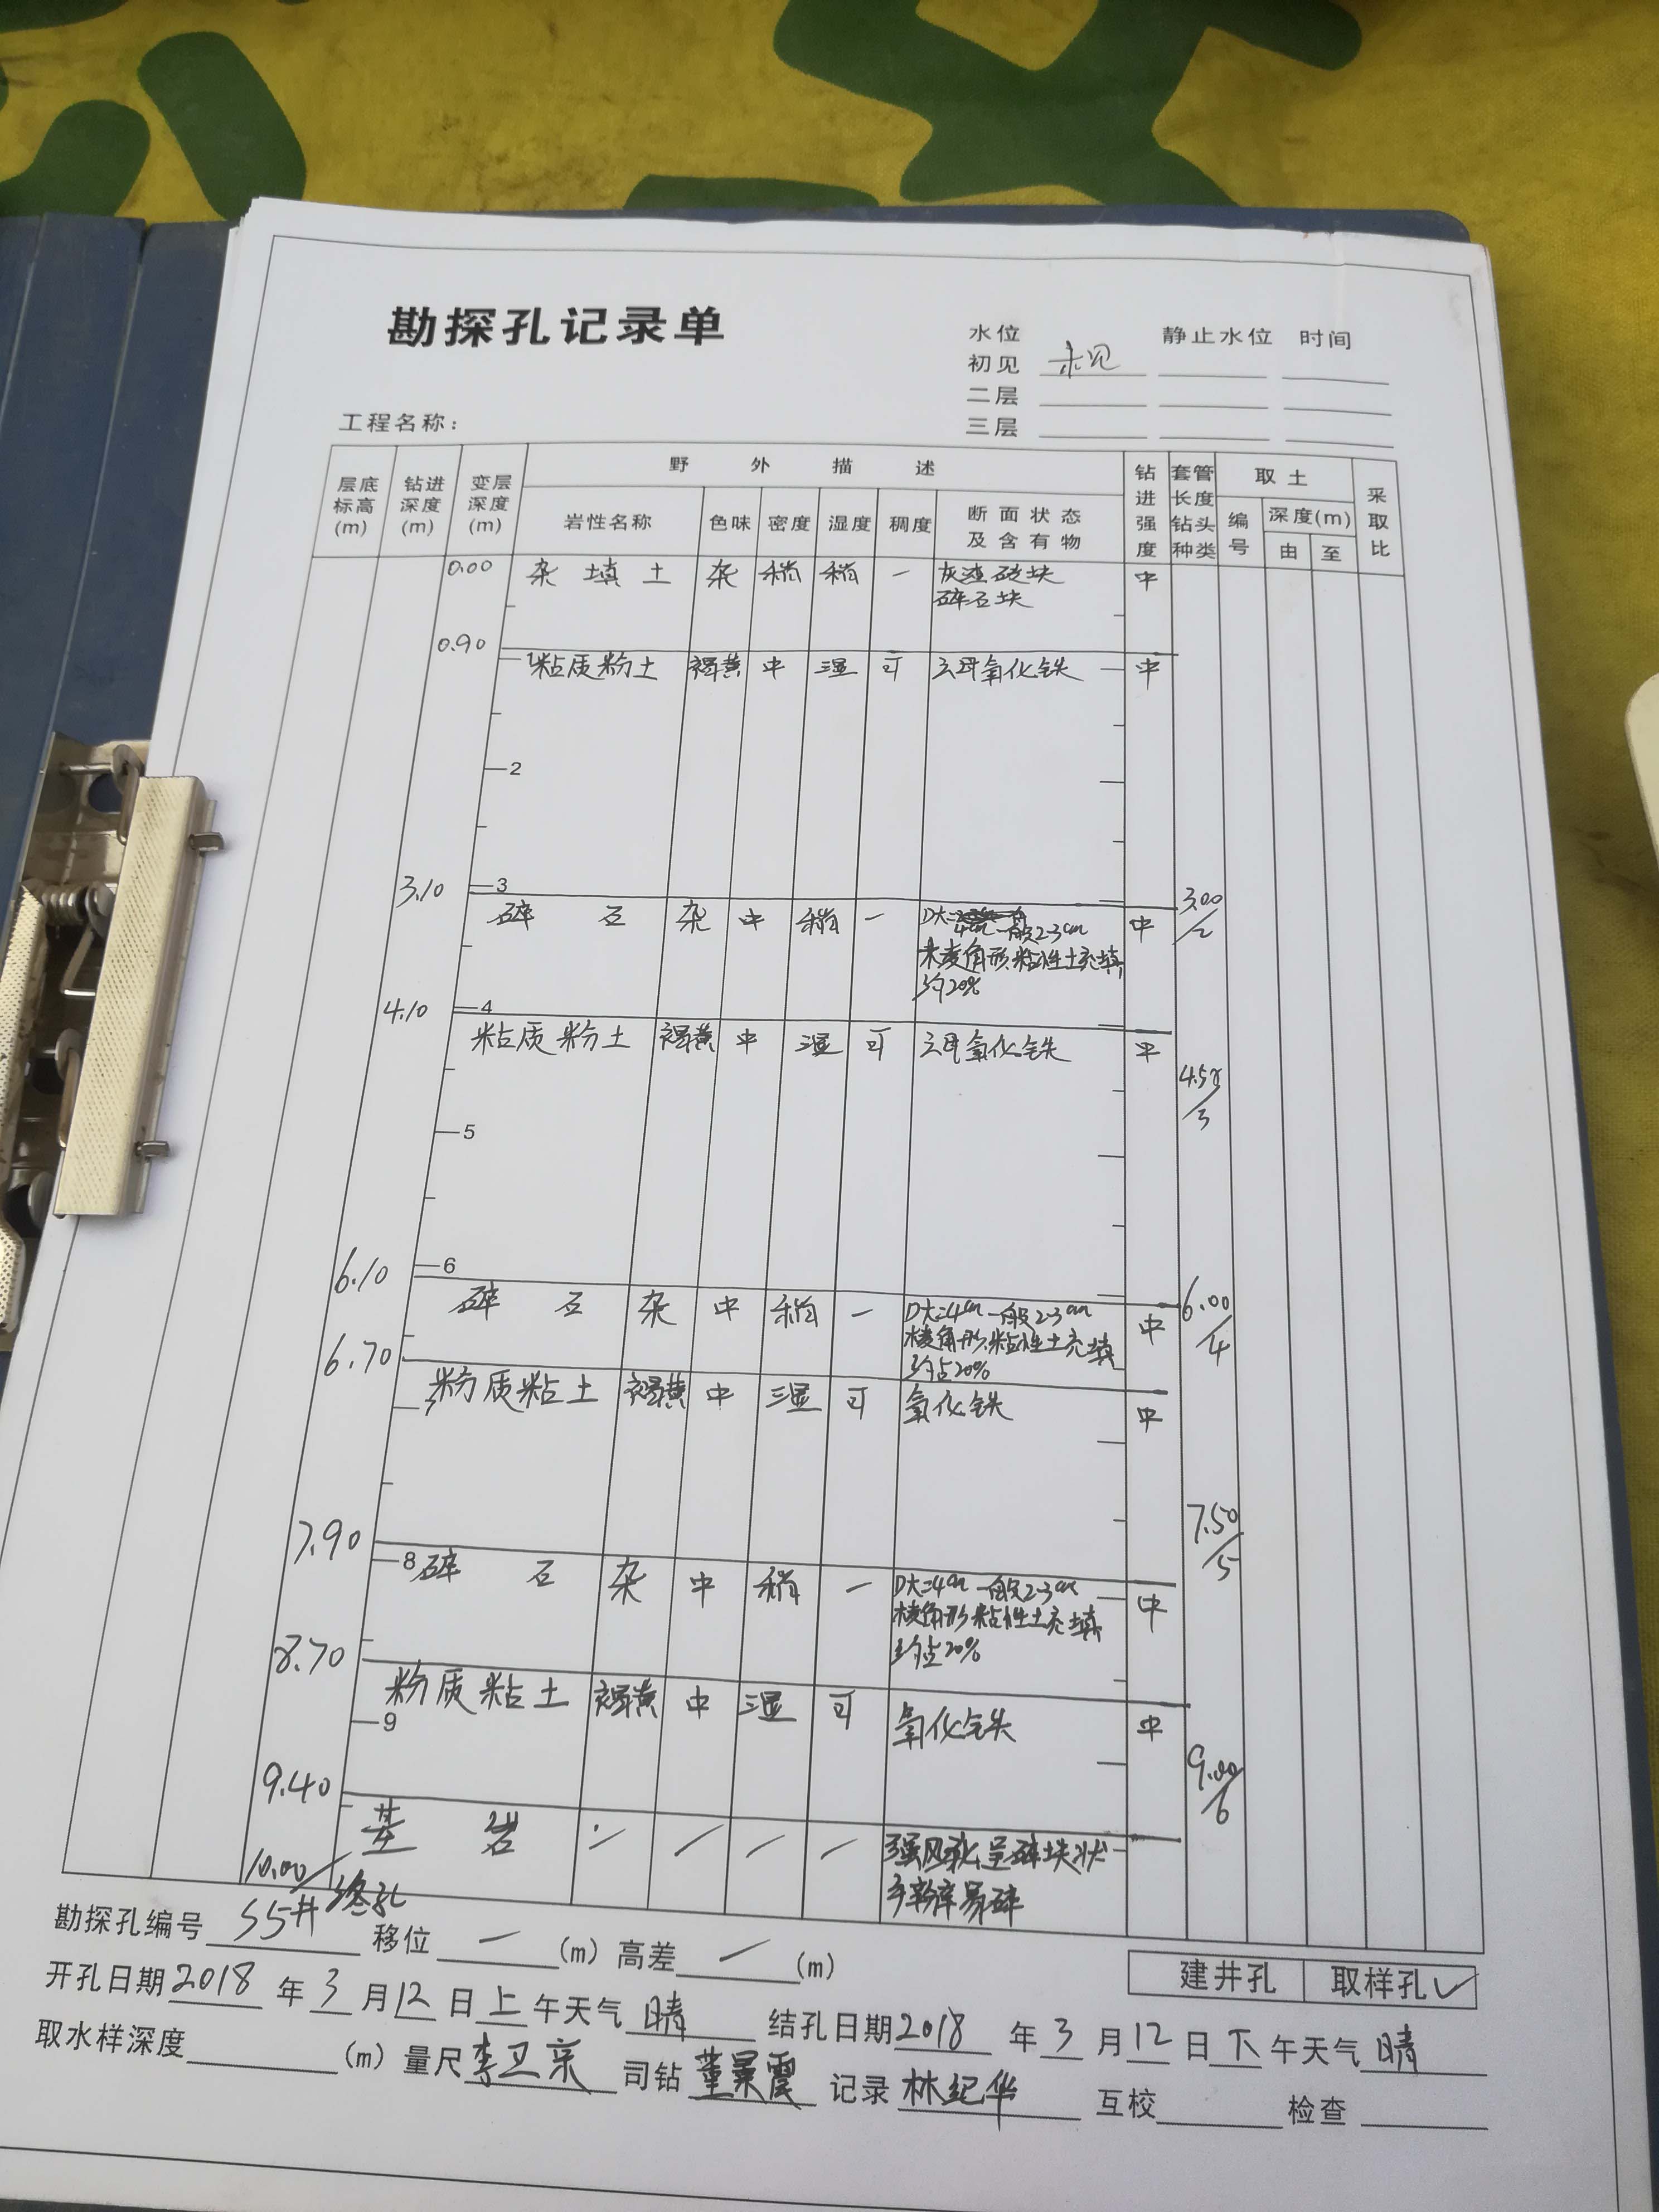 勘探孔记录单
水位 静止水位 时间
初见 未见
二层
三层
工程名称：
层底标高(m) 钻进深度(m) 变层深度(m) 野外描述 钻进强度 套管长度钻头种类 取土 采取比
岩性名称 色味 密度 湿度 稠度 断面状态及含有物 编号 深度(m)
由 至
0.00 杂填土 杂 稍 稍 一 灰渣砖块 中
碎石块
0.90
1 粘质粉土 褐黄 中 湿 可 云母氧化铁 中
2
3.10 3 3.00/2
碎石 杂 中 稍 一 D大=4cm 一般2-3cm 中
棱角形粘性土充填
约20%
4.10 4
粘质粉土 褐黄 中 湿 可 云母氧化铁 中
4.50/3
5
6.10 6 6.00/4
碎石 杂 中 稍 一 D大=4cm 一般2-3cm 中
棱角形,粘性土充填
约占20%
6.70
7 粉质粘土 褐黄 中 湿 可 氧化铁 中
7.50/5
7.90
8 碎石 杂 中 稍 一 D大=4cm 一般2-3cm 中
棱角形粘性土充填
约占20%
8.70
粉质粘土 褐黄 中 湿 可 氧化铁 中
9
9.00/6
9.40
基岩 强风化,呈碎块状
手掰易碎
10.00 终孔
勘探孔编号 S5井 移位 一 (m) 高差 一 (m)
建井孔 取样孔 ✓
开孔日期 2018 年 3 月 12 日 上 午天气 晴 结孔日期 2018 年 3 月 12 日 下 午天气 晴
取水样深度 (m) 量尺 李卫京 司钻 董景震 记录 林纪华 互校 检查